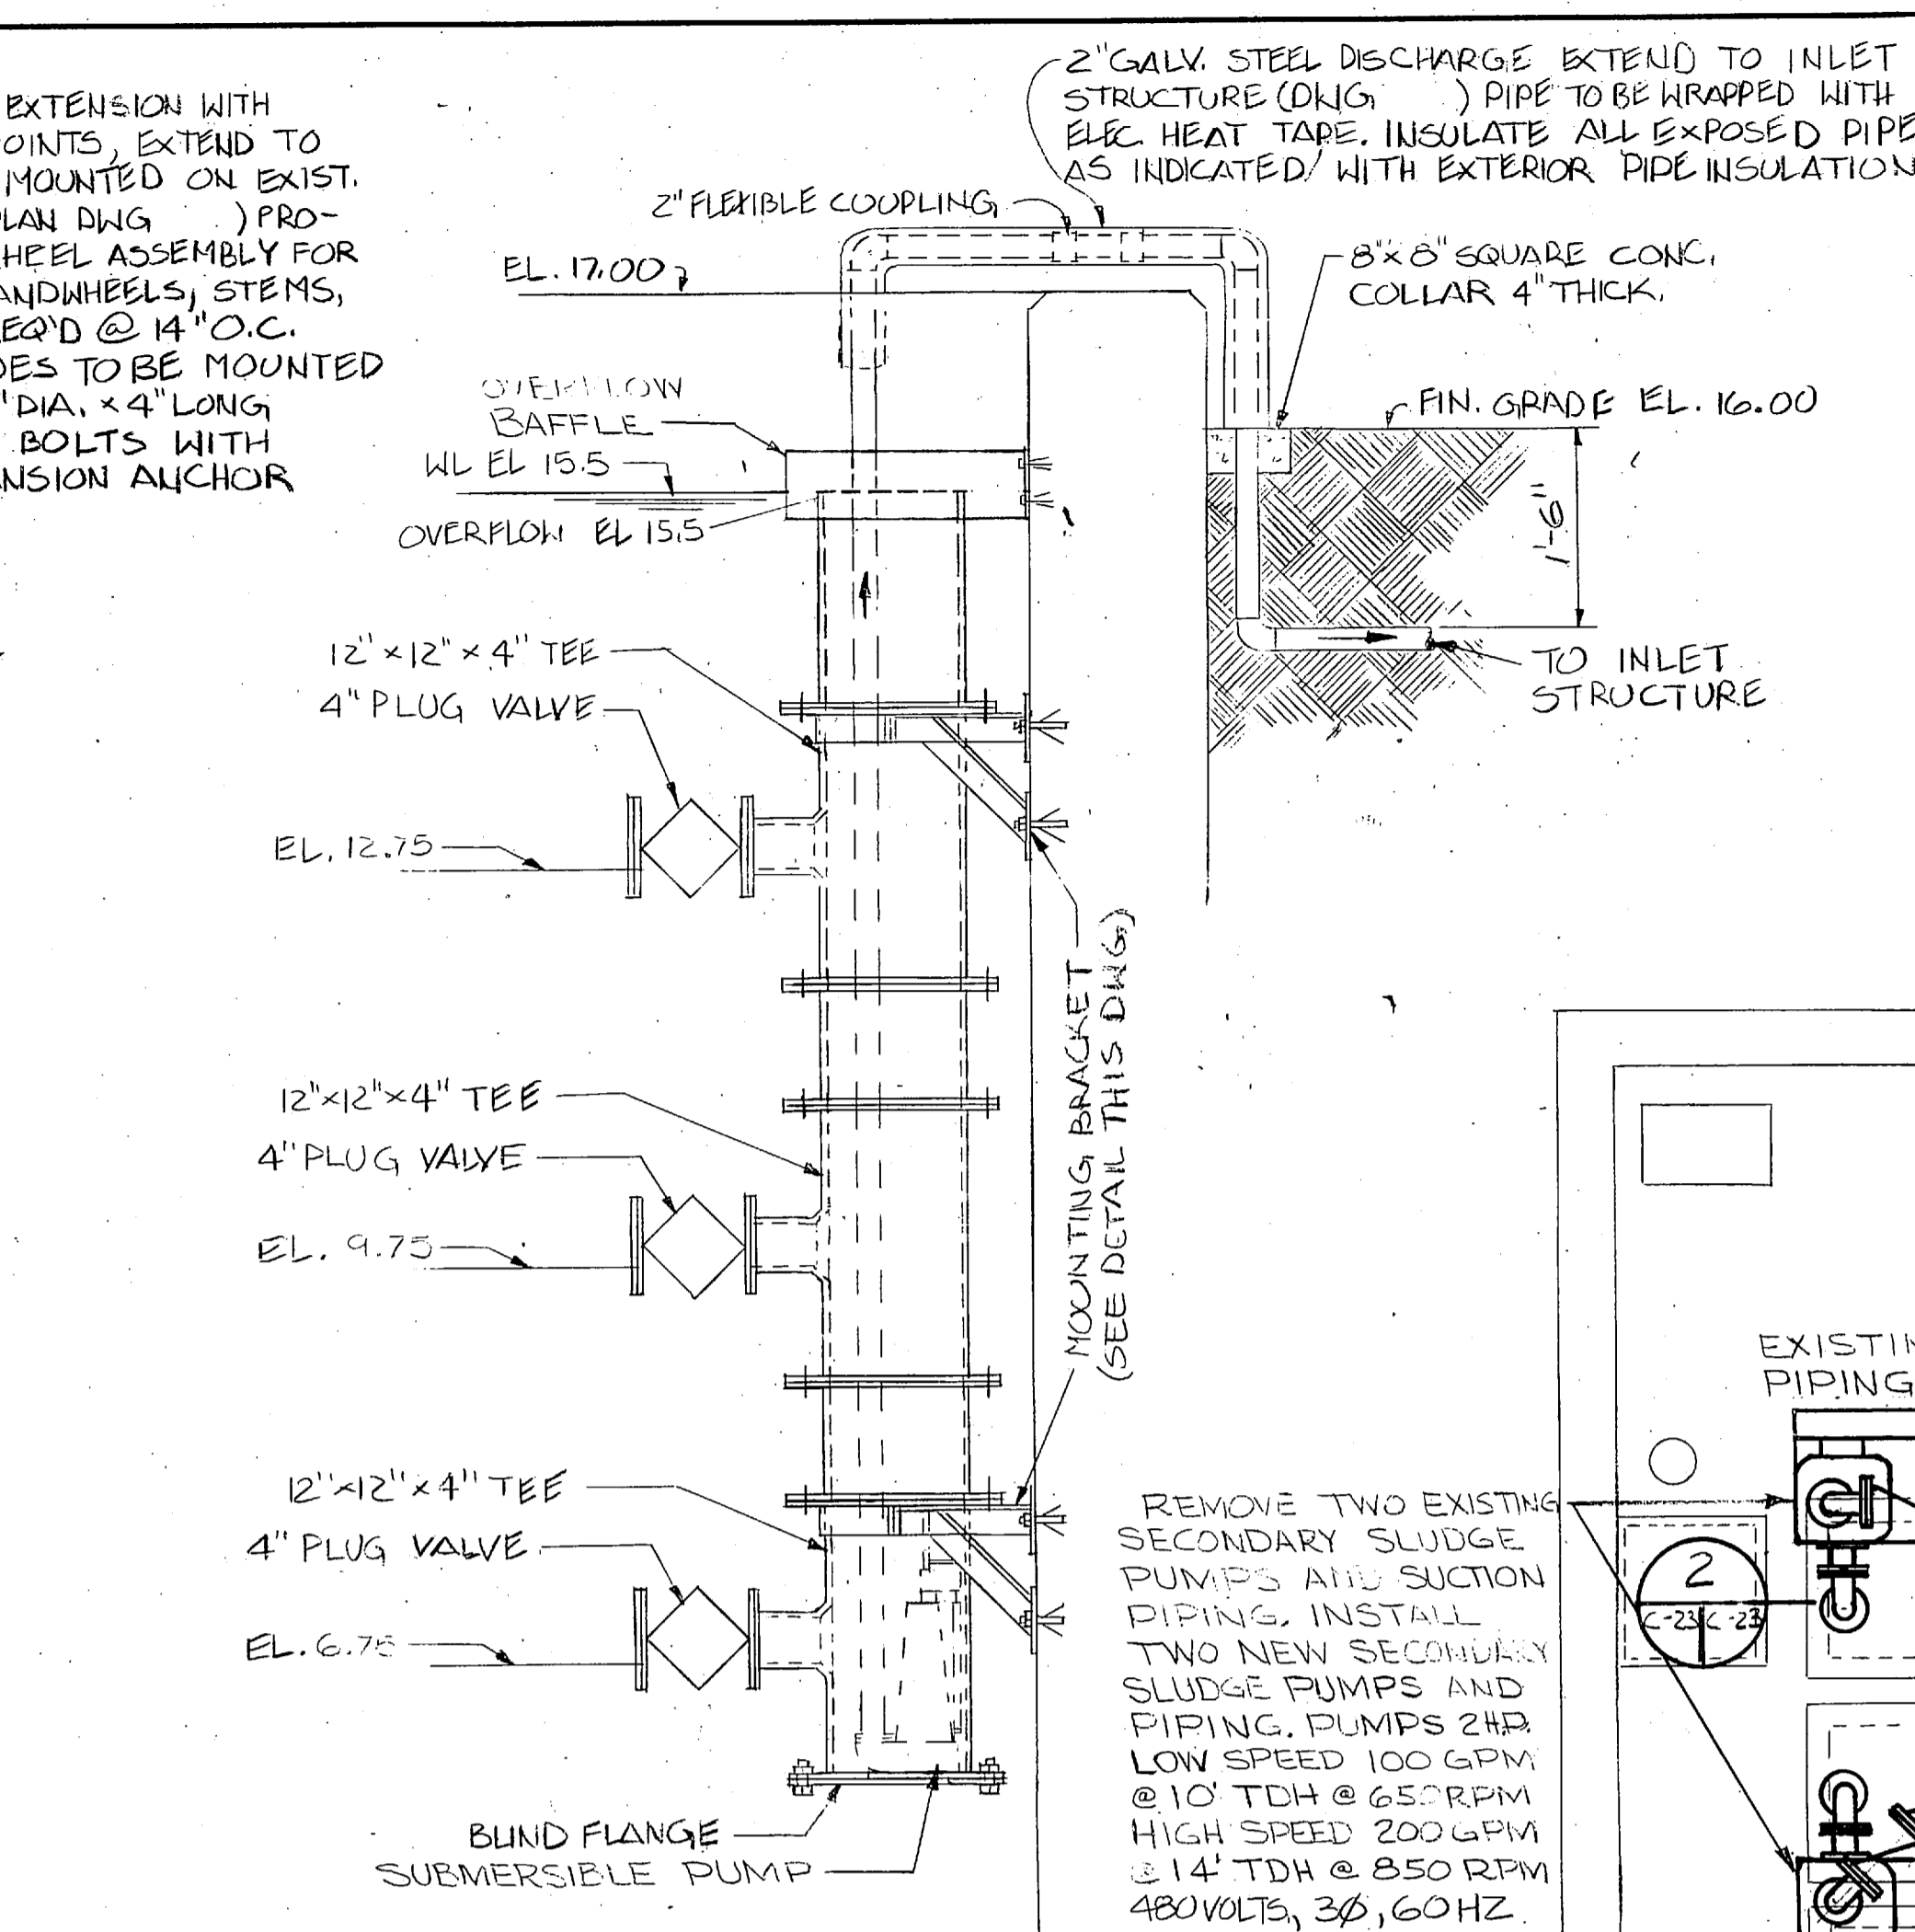 EXTENSION WITH
OINTS, EXTEND TO
MOUNTED ON EXIST.
LAN DWG ) PRO-
HEEL ASSEMBLY FOR
ANDWHEELS, STEMS,
EQ'D @ 14" O.C.
DES TO BE MOUNTED
" DIA. × 4" LONG
BOLTS WITH
NSION ANCHOR
2" GALV. STEEL DISCHARGE EXTEND TO INLET
STRUCTURE (DWG ) PIPE TO BE WRAPPED WITH
ELEC. HEAT TAPE. INSULATE ALL EXPOSED PIPE
AS INDICATED/ WITH EXTERIOR PIPE INSULATION
2" FLEXIBLE COUPLING
EL. 17.00
8"×8" SQUARE CONC.
COLLAR 4" THICK.
OVERFLOW
BAFFLE
FIN. GRADE EL. 16.00
WL EL 15.5
OVERFLOW EL 15.5
1'-6"
TO INLET
STRUCTURE
12"×12"×4" TEE
4" PLUG VALVE
EL. 12.75
MOUNTING BRACKET
(SEE DETAIL THIS DWG)
12"×12"×4" TEE
4" PLUG VALVE
EL. 9.75
EXISTIN
PIPING
12"×12"×4" TEE
4" PLUG VALVE
EL. 6.75
REMOVE TWO EXISTING
SECONDARY SLUDGE
PUMPS AND SUCTION
PIPING. INSTALL
TWO NEW SECONDARY
SLUDGE PUMPS AND
PIPING. PUMPS 2 H.P.
LOW SPEED 100 GPM
@ 10' TDH @ 650 RPM
HIGH SPEED 200 GPM
@ 14' TDH @ 850 RPM
480 VOLTS, 3Ø, 60 HZ.
2
C-23 C-23
BLIND FLANGE
SUBMERSIBLE PUMP